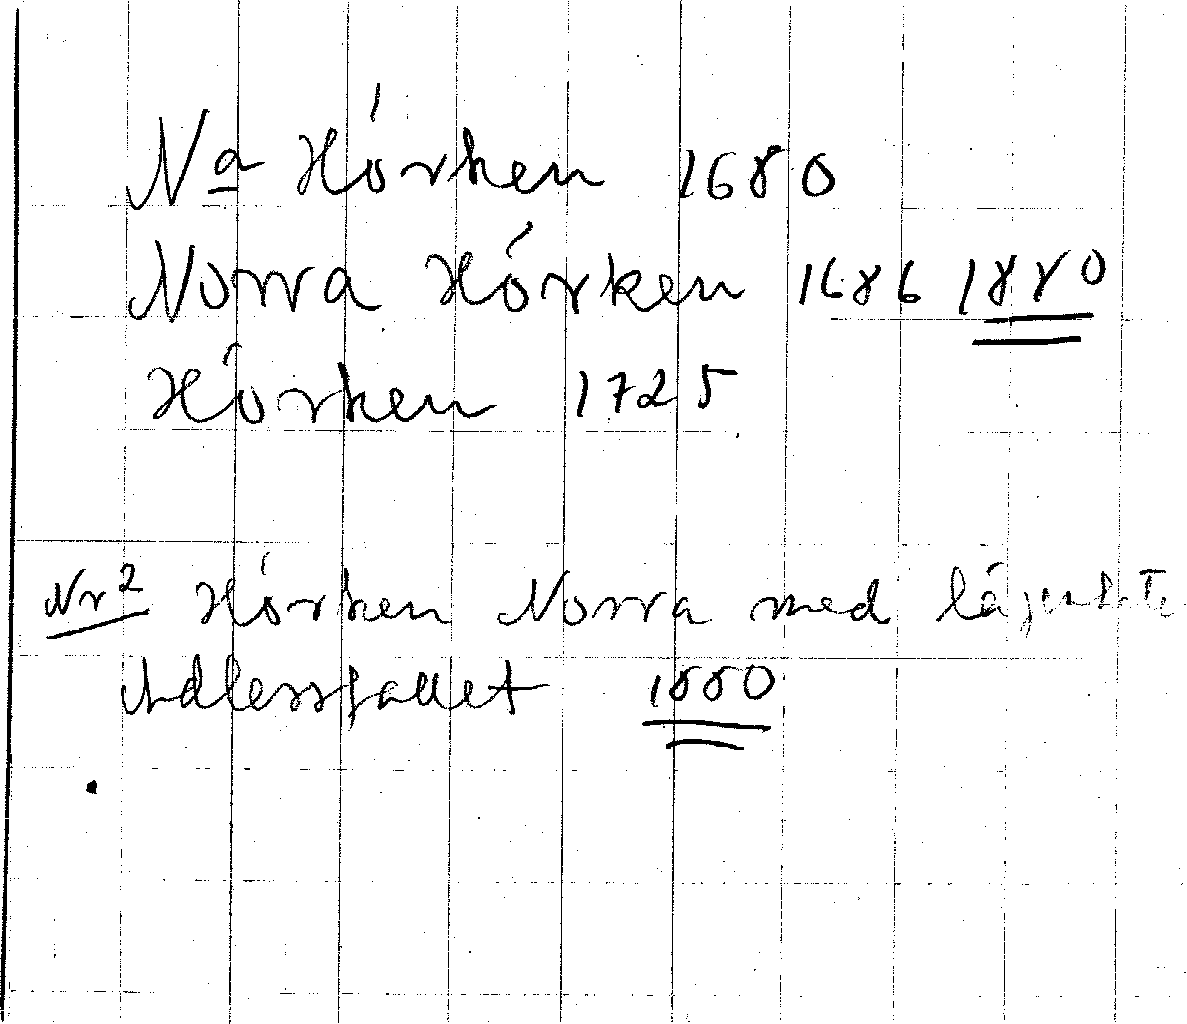 Na Hörken 1680
Norra Hörken 1686 1880
Hörken 1725
Nr 2 Hörken Norra med
1880